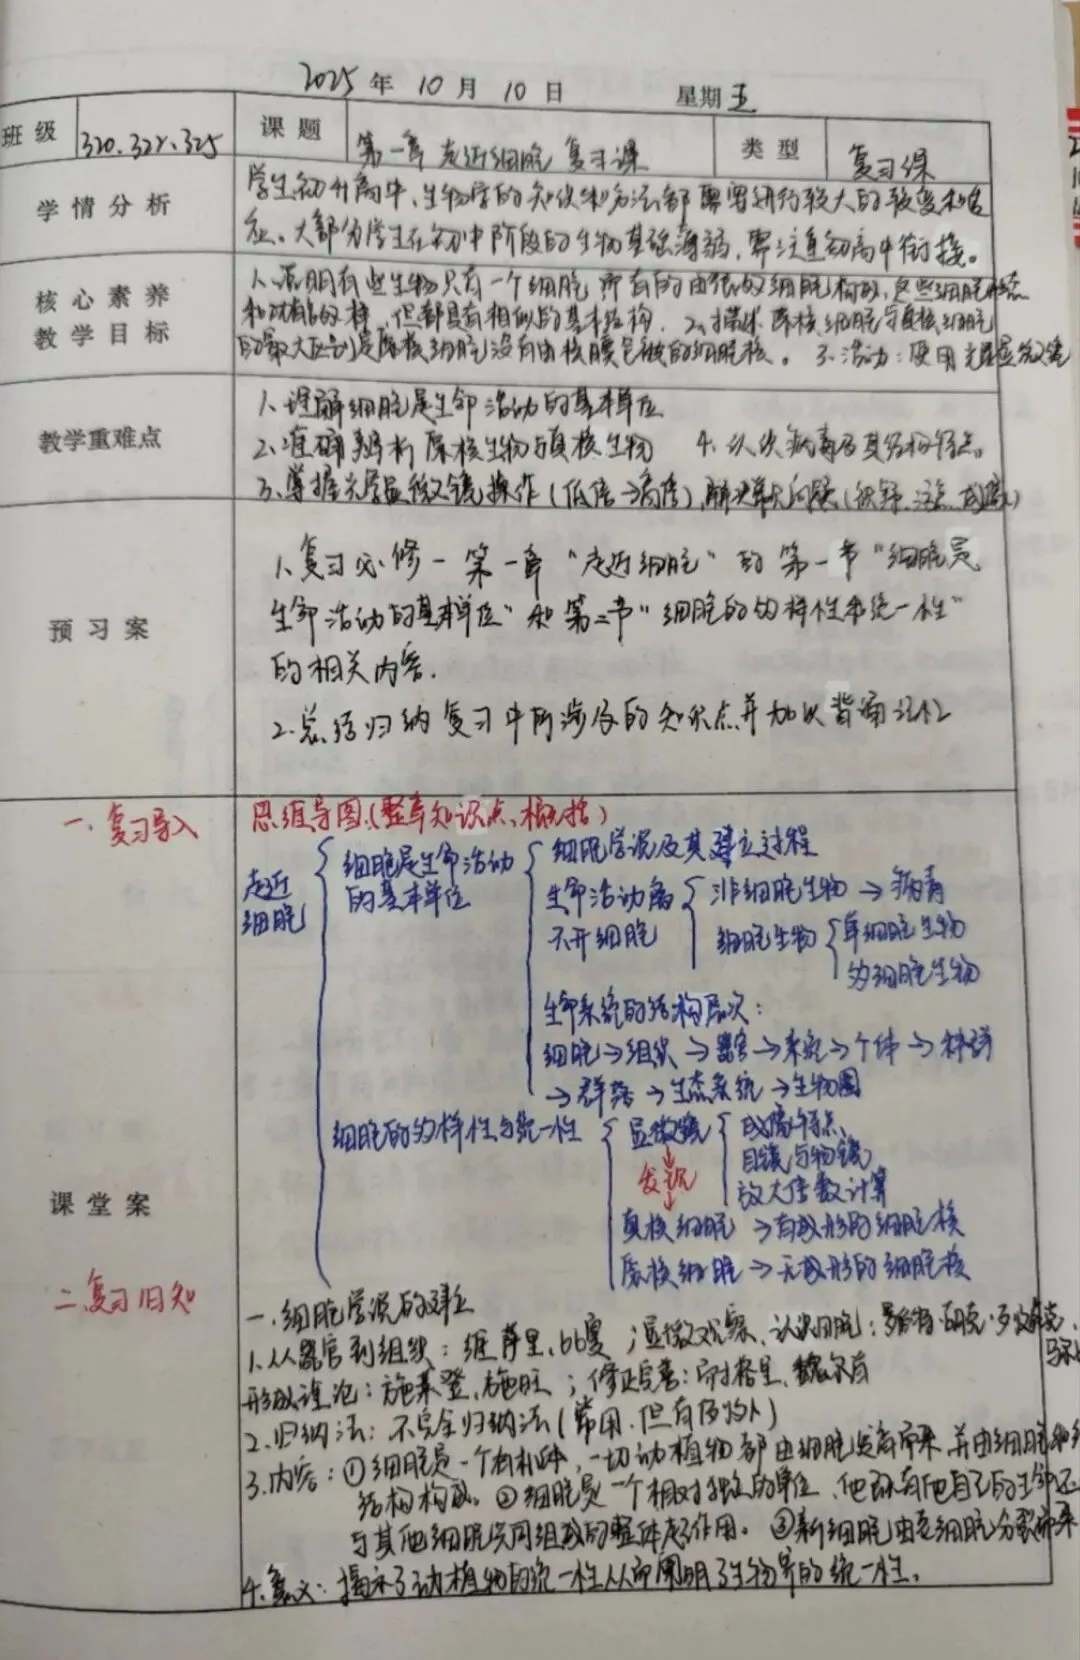 2025 年 10 月 10 日 星期 五
班级 320、322、325 课题 第一章 走近细胞 复习课 类型 复习课
学情分析 学生初升高中,生物学的知识和方法都需要进行较大的转变和适
应。大部分学生在初中阶段的生物基础薄弱,需注重初高中衔接。
核心素养 1、说明有些生物只有一个细胞,而有的由很多细胞构成,这些细胞形态
教学目标 和功能多样,但都具有相似的基本结构。2、描述原核细胞与真核细胞
的最大区别是原核细胞没有由核膜包被的细胞核。3、活动:使用光学显微镜
1、理解细胞是生命活动的基本单位
教学重难点 2、准确辨析原核生物与真核生物 4、认识病毒及其结构特点。
3、掌握光学显微镜操作(低倍→高倍),解决常见问题(
预习案 1、复习必修一第一章“走近细胞”的第一节“细胞是
生命活动的基本单位”和第二节“细胞的多样性和统一性”
的相关内容.
2.总结归纳复习中所涉及的知识点并加以背诵记忆
一、复习导入 思维导图(整章知识点、概括)
走近细胞
细胞是生命活动的基本单位
细胞学说及其建立过程
生命活动离不开细胞
非细胞生物 → 病毒
细胞生物 单细胞生物
多细胞生物
生命系统的结构层次:
细胞→组织→器官→系统→个体→种群
→群落→生态系统→生物圈
细胞的多样性与统一性
显微镜 成像特点、
目镜与物镜、
放大倍数计算
发现
真核细胞 →有成形的细胞核
原核细胞 →无成形的细胞核
课堂案
二、复习旧知
一、细胞学说的建立
1.从器官到组织:维萨里、比夏;显微观察、认识细胞:罗伯特·胡克、列文虎克、
形成理论:施莱登、施旺;修正完善:耐格里、魏尔肖
2、归纳法:不完全归纳法(常用,但有例外)
3.内容:①细胞是一个有机体,一切动植物都由细胞发育而来,并由细胞和
结构构成。②细胞是一个相对独立的单位,他既有他自己的生命还
与其他细胞共同组成的整体起作用。③新细胞由老细胞分裂而来
4.意义:揭示了动植物的统一性从而阐明了生物界的统一性。